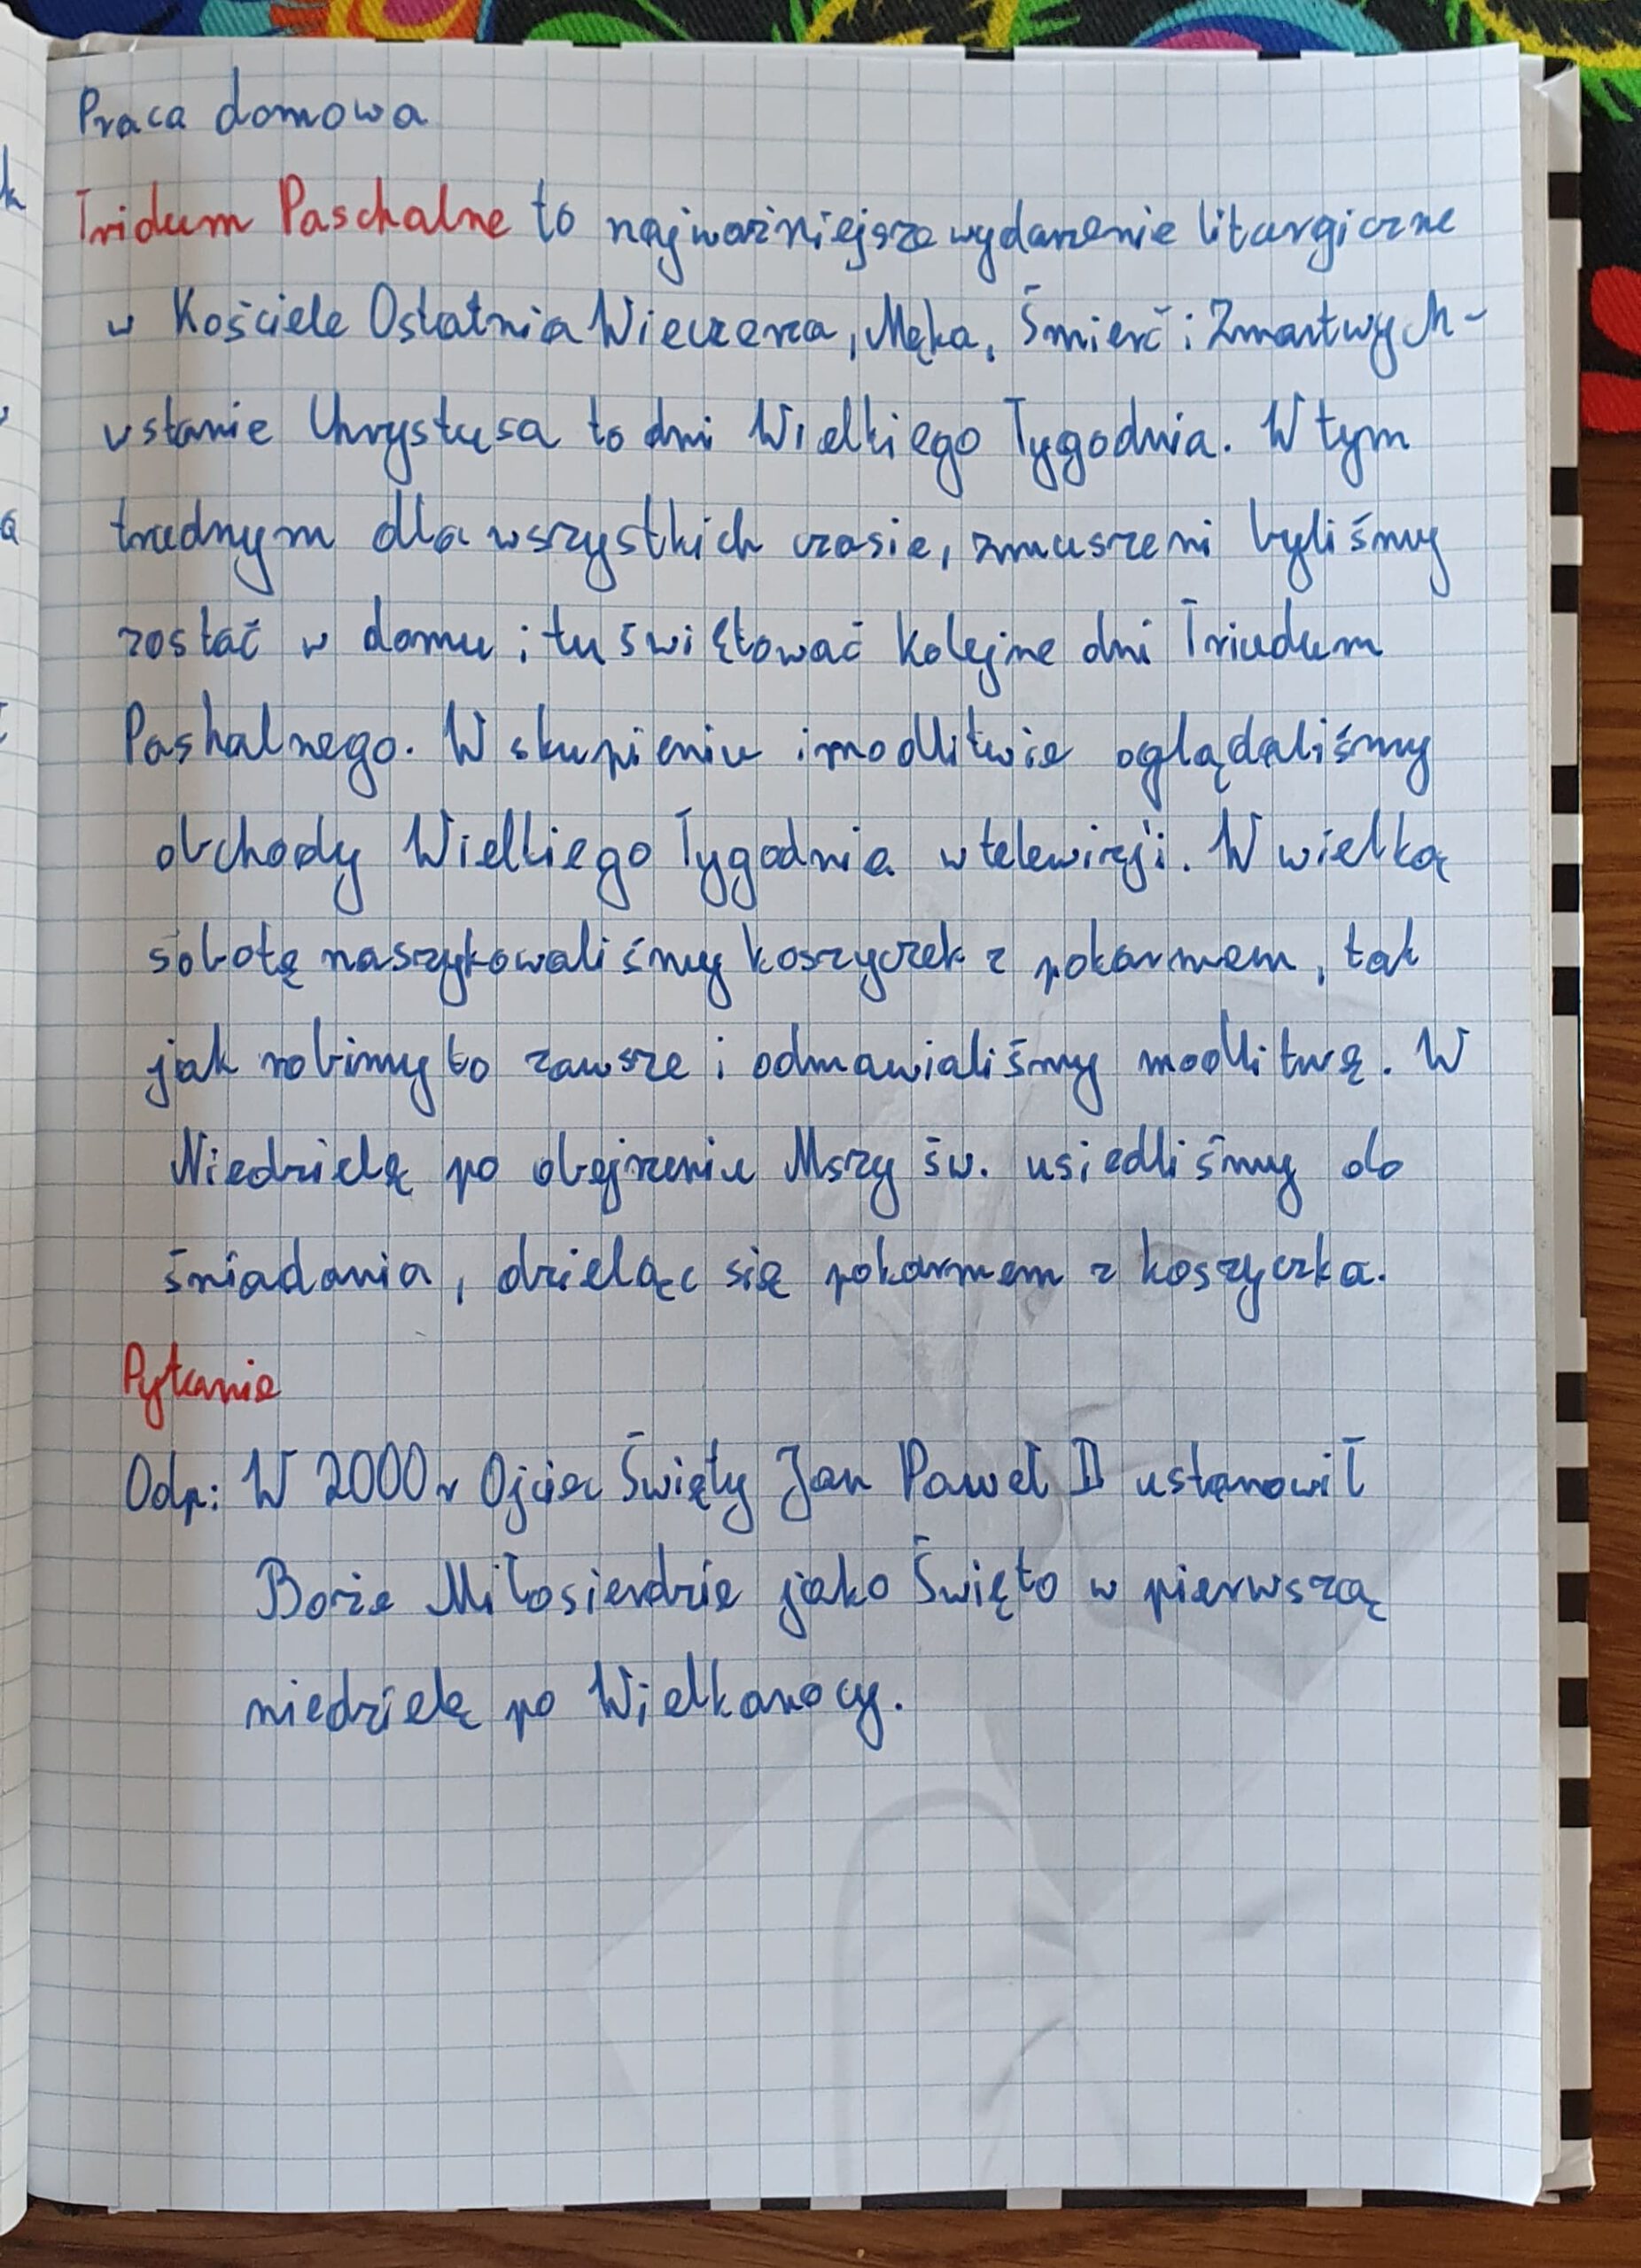 Praca domowa
Tridum Paschalne to najważniejsze wydarzenie liturgiczne
w Kościele Ostatnia Wieczerza, Męka, Śmierć i Zmartwych-
wstanie Chrystusa to dni Wielkiego Tygodnia. W tym
trudnym dla wszystkich czasie, zmuszeni byliśmy
zostać w domu i tu świętować kolejne dni Triudum
Pashalnego. W skupieniu i modlitwie oglądaliśmy
obchody Wielkiego Tygodnia w telewizji. W wielką
sobotę naszykowaliśmy koszyczek z pokarmem, tak
jak robimy to zawsze i odmawialiśmy modlitwę. W
Niedzielę po obejrzeniu Mszy św. usiedliśmy do
śniadania, dzieląc się pokarmem z koszyczka.
Pytanie
Odp: W 2000 r Ojciec Święty Jan Paweł II ustanowił
Boże Miłosierdzie jako Święto w pierwszą
niedzielę po Wielkanocy.